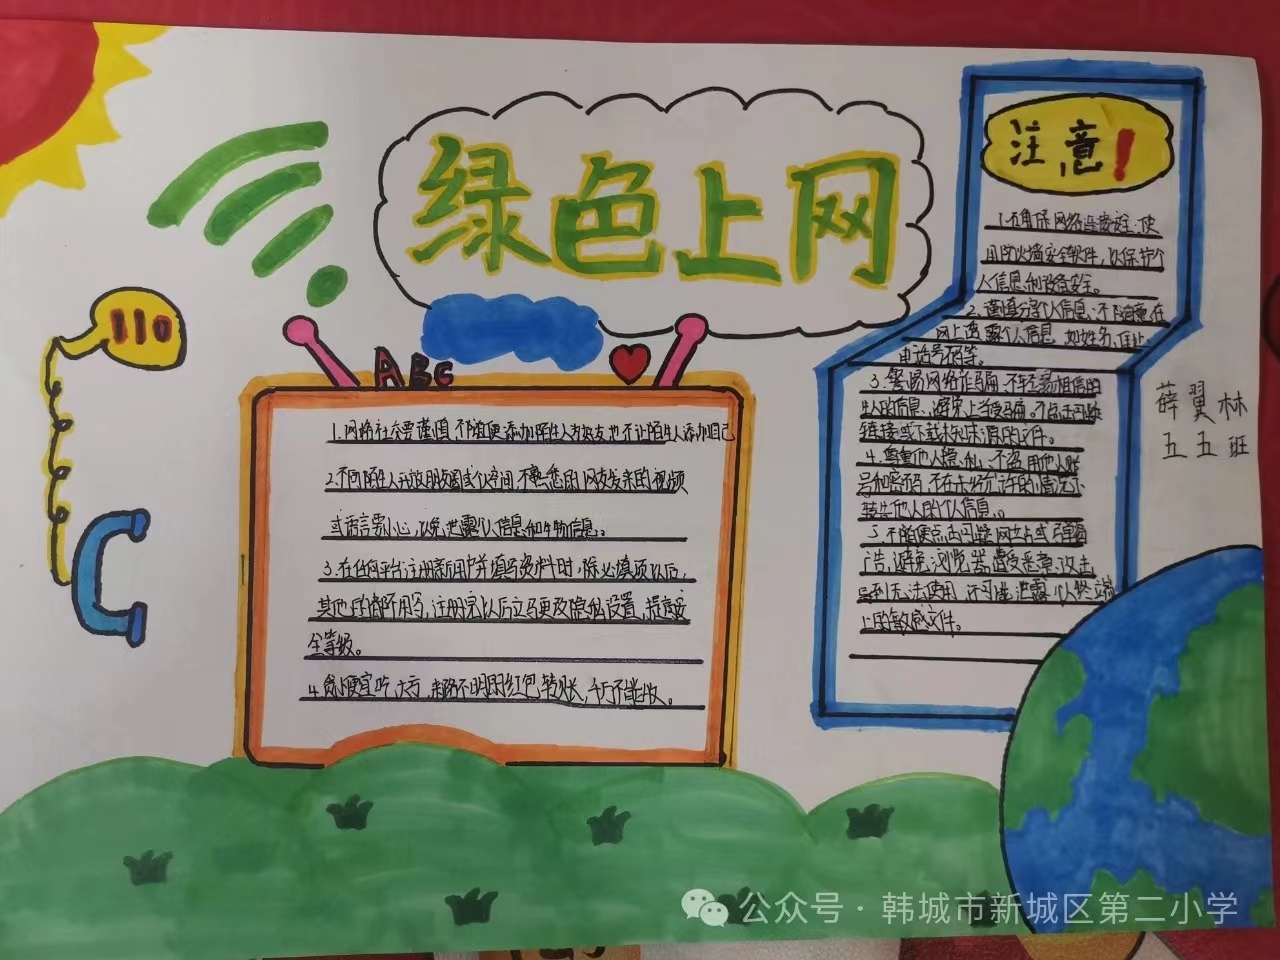 绿色上网
注意!
110
ABC
1.网络社交要谨慎,不随便添加陌生人为好友也不让陌生人添加自己
2.不向陌生人开放朋友圈或个人空间,不熟悉的网友发来的视频
或语言要小心,以免泄露个人信息和生物信息。
3.在任何平台注册新用户并填写资料时,除必填项以后,
其他的都不用写,注册完以后立马更改隐私设置,提高安
全等级。
4.贪小便宜吃大亏,来路不明的红包、转账,千万不能收。
1.确保网络连接安全:使
用防火墙安全软件,以保护个
人信息和设备安全。
2.谨慎分享个人信息:不随意在
网上透露个人信息,如姓名、住址、
电话号码等。
3.警惕网络诈骗:不轻易相信陌
生人的信息、避免上当受骗。不点击可疑
链接或下载未知来源的文件。
4.尊重他人隐私:不盗用他人账
号和密码,不在未经允许的情况下
转告他人的个人信息。
5.不随便点击可疑网站或弹窗
广告,避免浏览器遭受恶意攻击
导致无法使用,还可能泄露个人终端
上的敏感文件。
薛翼林
五五班
公众号·韩城市新城区第二小学